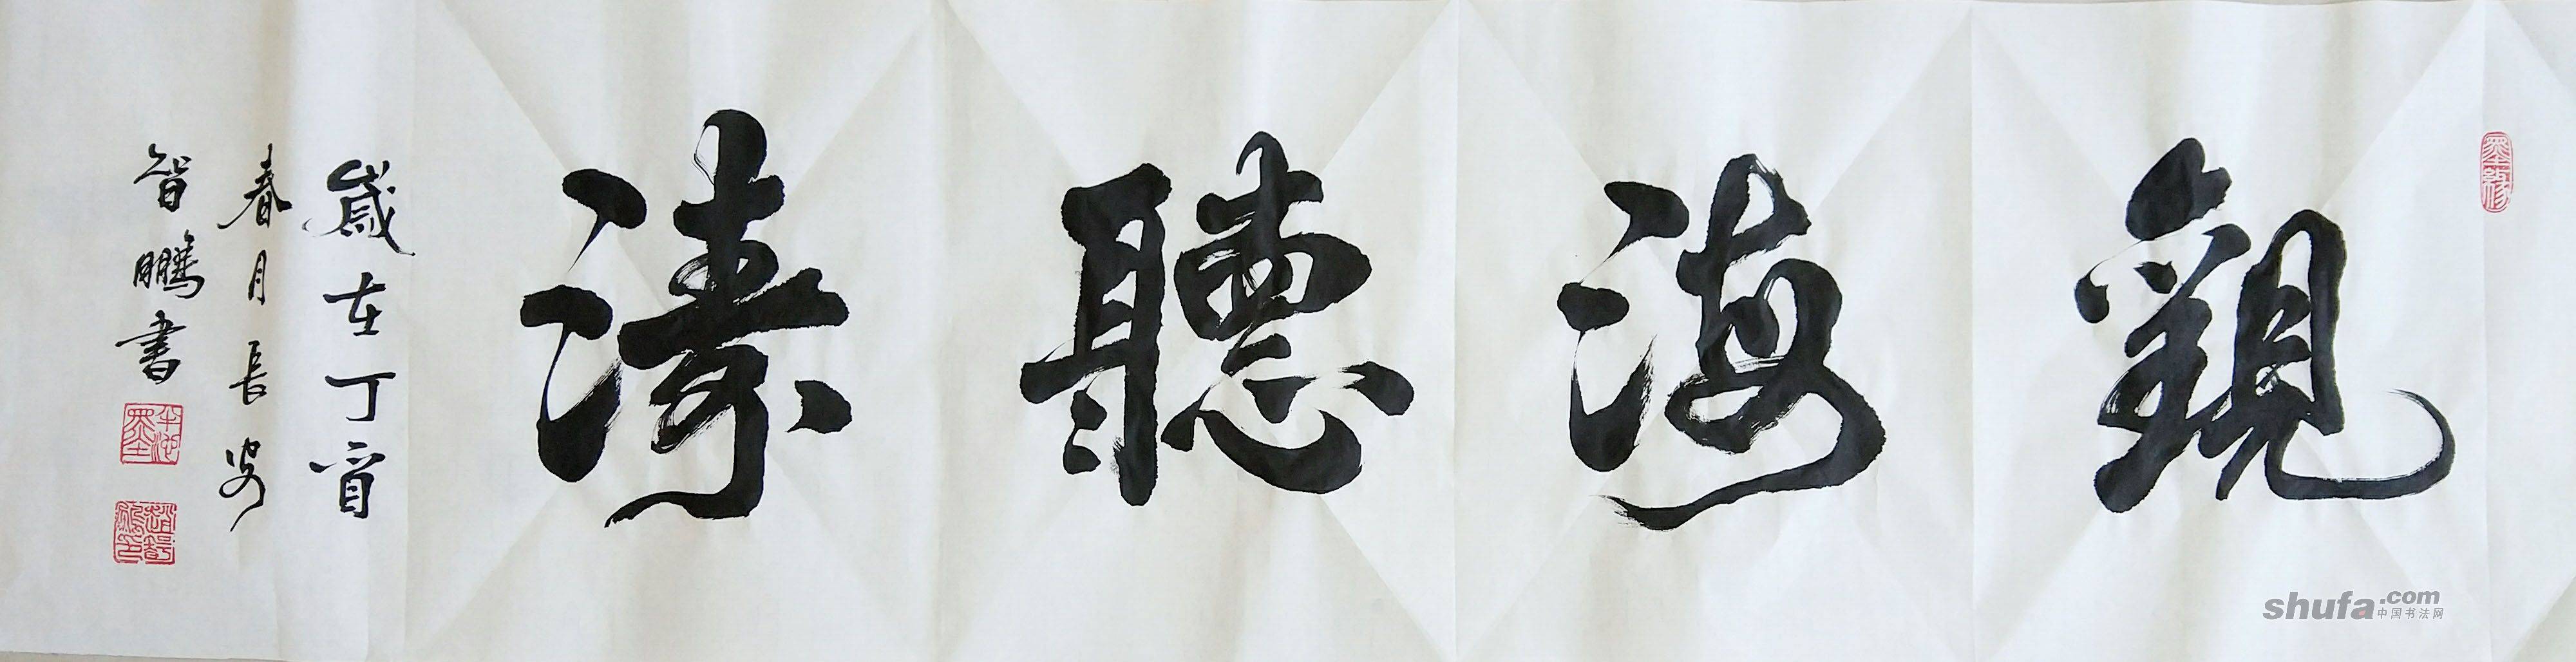 觀海聽濤
歲在丁酉
春月長安
智鵬書
墨緣
shufa.com
中国书法网